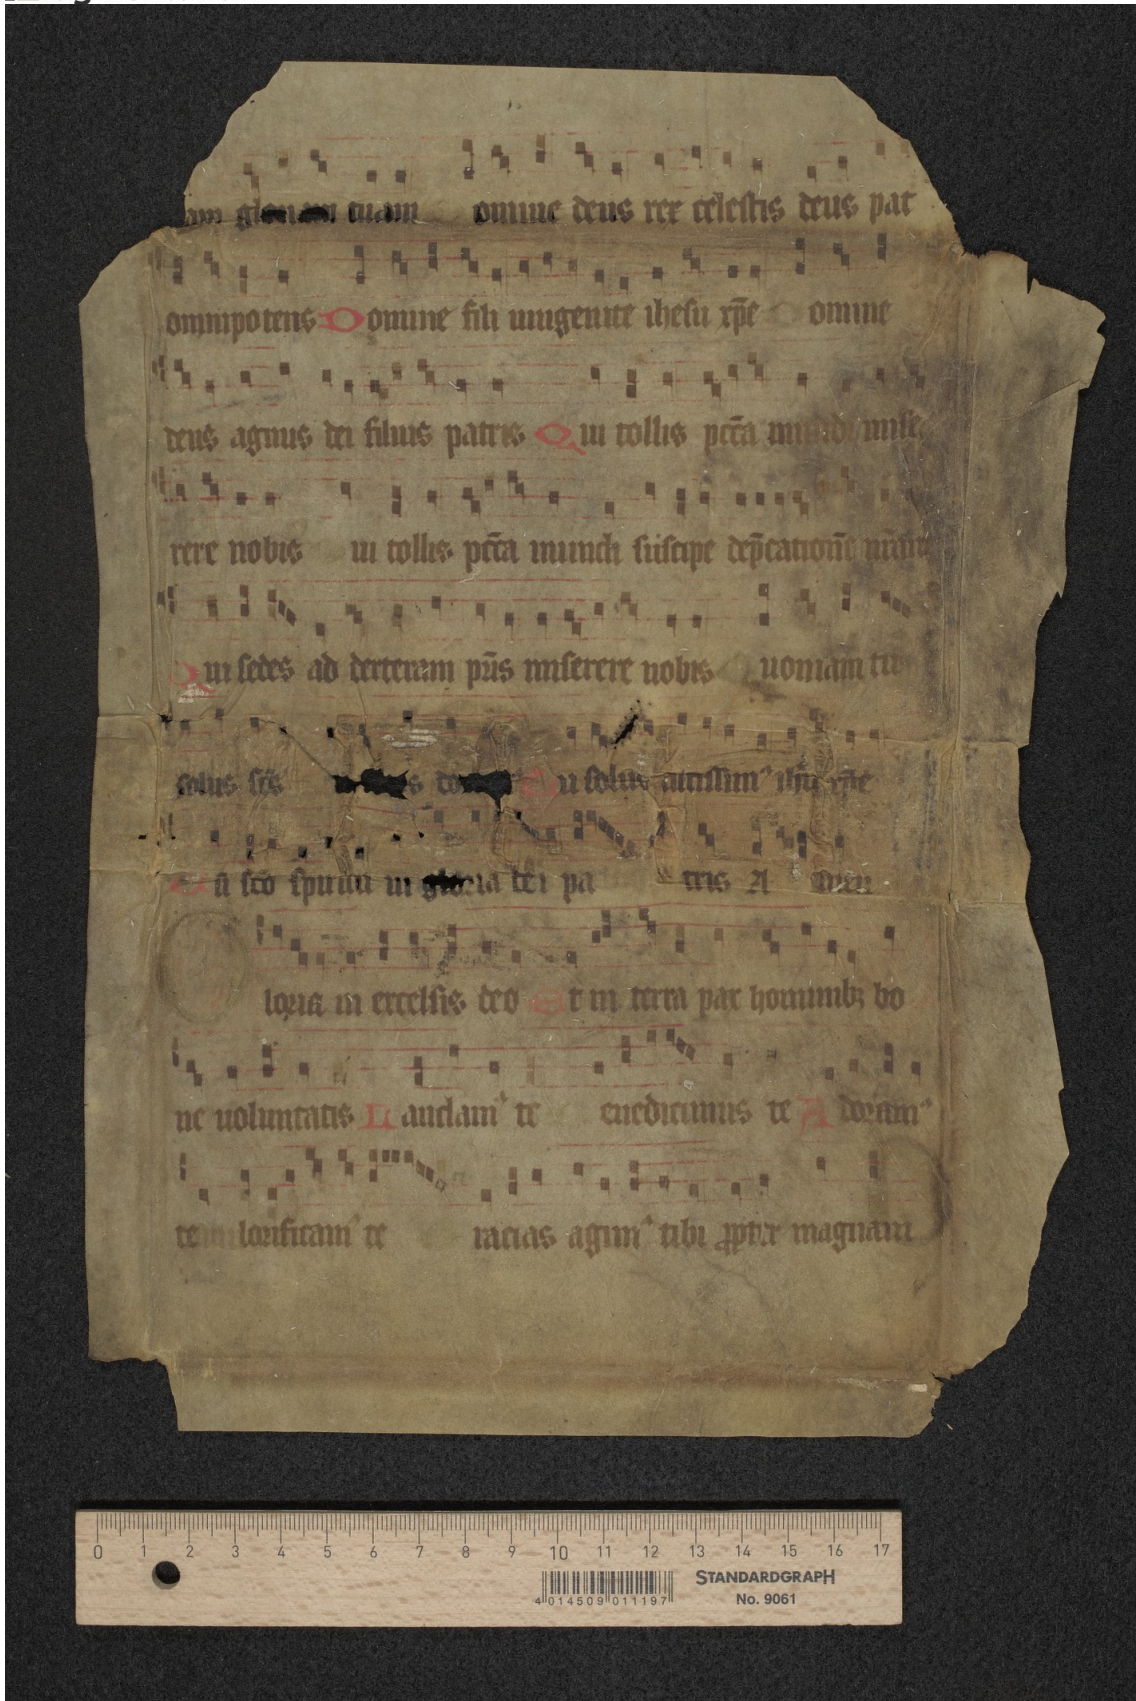 am gloriam tuam omine deus rex celestis deus pat
omnipotens Domine fili unigenite ihesu xp̄e omine
deus agnus dei filius patris Qui tollis pctā mundi mise
rere nobis ui tollis pctā mundi suscipe dep̄cationē nr̄am
Qui sedes ad dexteram pr̄is miserere nobis uoniam tu
solus scs̄ s do Tu solus altissimꝰ ihū xp̄e
scō spiritu in gloria dei pa tris A men
loria in excelsis deo Et in terra pax hominibꝫ bo
ne uoluntatis Laudamꝰ te enedicimus te Adoramꝰ
te lorificamꝰ te racias agimꝰ tibi magnam
0 1 2 3 4 5 6 7 8 9 10 11 12 13 14 15 16 17
STANDARDGRAPH
4 014509 011197
No. 9061